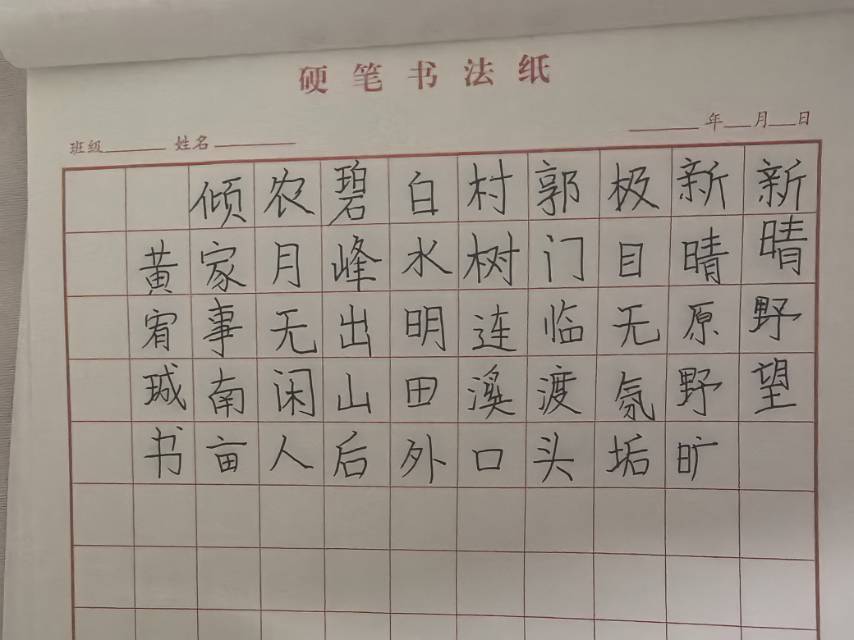 硬笔书法纸
班级 姓名 年 月 日
新晴野望
新晴原野旷
极目无氛垢
郭门临渡头
村树连溪口
白水明田外
碧峰出山后
农月无闲人
倾家事南亩
黄宥珹书